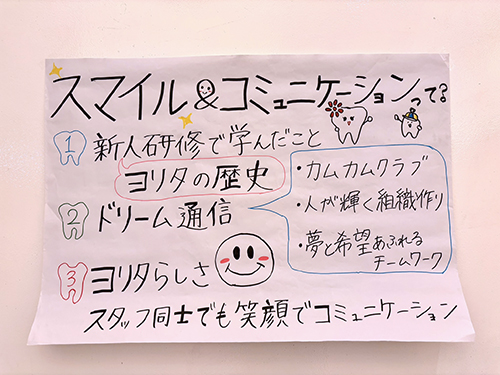 スマイル&コミュニケーションって?
1 新人研修で学んだこと
ヨリタの歴史
2 ドリーム通信
・カムカムクラブ
・人が輝く組織作り
・夢と希望あふれる
チームワーク
3 ヨリタらしさ
スタッフ同士でも笑顔でコミュニケーション